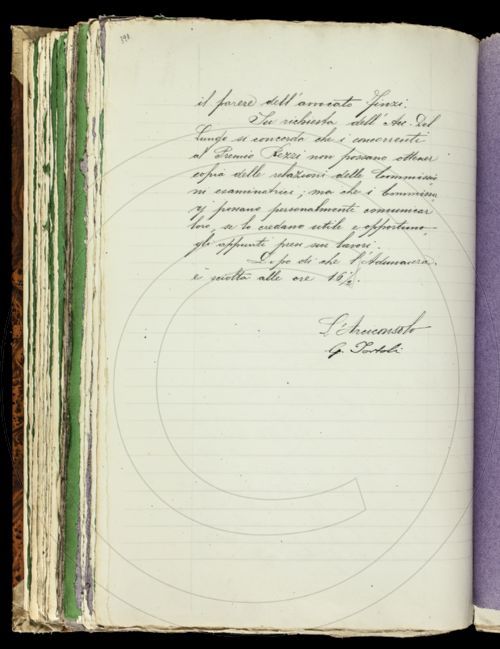 il parere dell'avvocato
Su richiesta dell'Acc. Del
Lungo si concorda che i concorrenti
al Premio Rezzi non possano ottener
copia delle relazioni delle Commissio
ni esaminatrici; ma che i Commissa
rj possano personalmente comunicar
loro, se lo credano utile e opportuno
gli appunti presi sui lavori.
Dopo di che l'Adunanza
è sciolta alle ore 16 1/2.
L'Arciconsolo
G. Tortoli